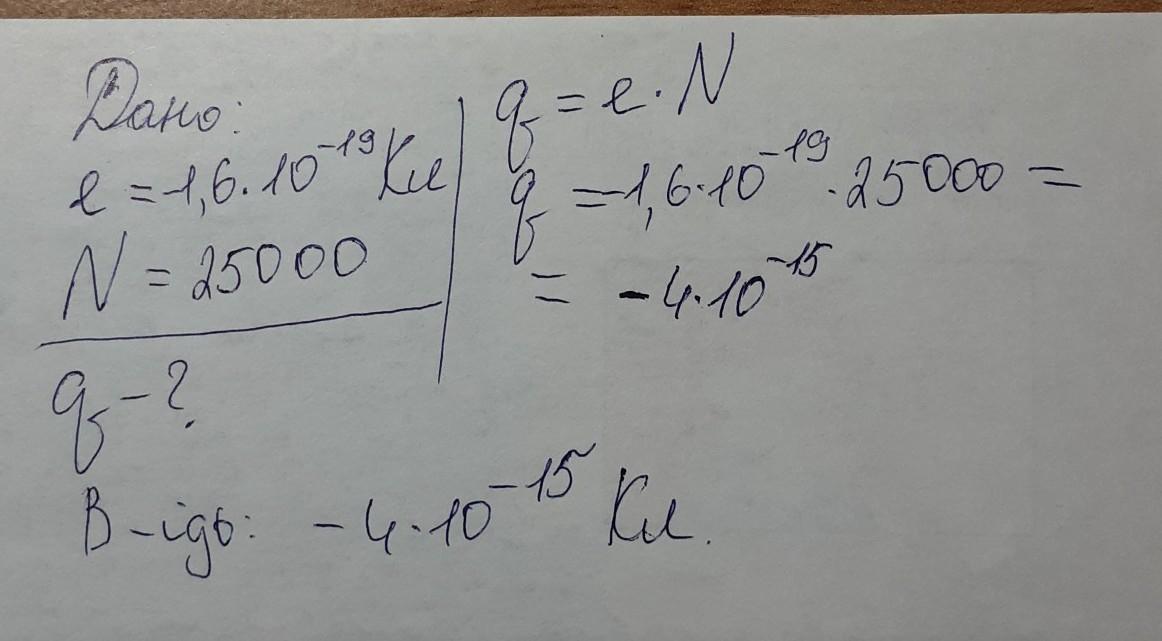 Дано:
e = -1,6·10⁻¹⁹ Кл
N = 25000
q - ?
q = e·N
q = -1,6·10⁻¹⁹·25000 =
= -4·10⁻¹⁵
В-ідь: -4·10⁻¹⁵ Кл.